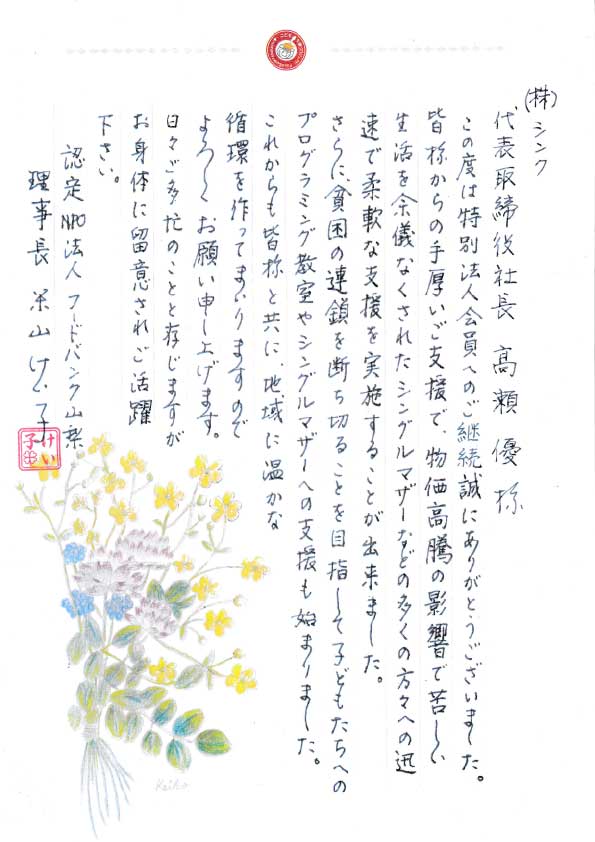 (株)シンク
代表取締役社長 高瀬 優様
この度は特別法人会員へのご継続誠にありがとうございました。
皆様からの手厚いご支援で、物価高騰の影響で苦しい
生活を余儀なくされたシングルマザーなどの多くの方々への迅
速で柔軟な支援を実施することが出来ました。
さらに、貧困の連鎖を断ち切ることを目指して子どもたちへの
プログラミング教室やシングルマザーへの支援も始まりました。
これからも皆様と共に、地域に温かな
循環を作ってまいりますので
よろしくお願い申し上げます。
日々ご多忙のことと存じますが
お身体に留意されご活躍
下さい。
認定NPO法人 フードバンク山梨
理事長 米山けい子
けい子
Keiko